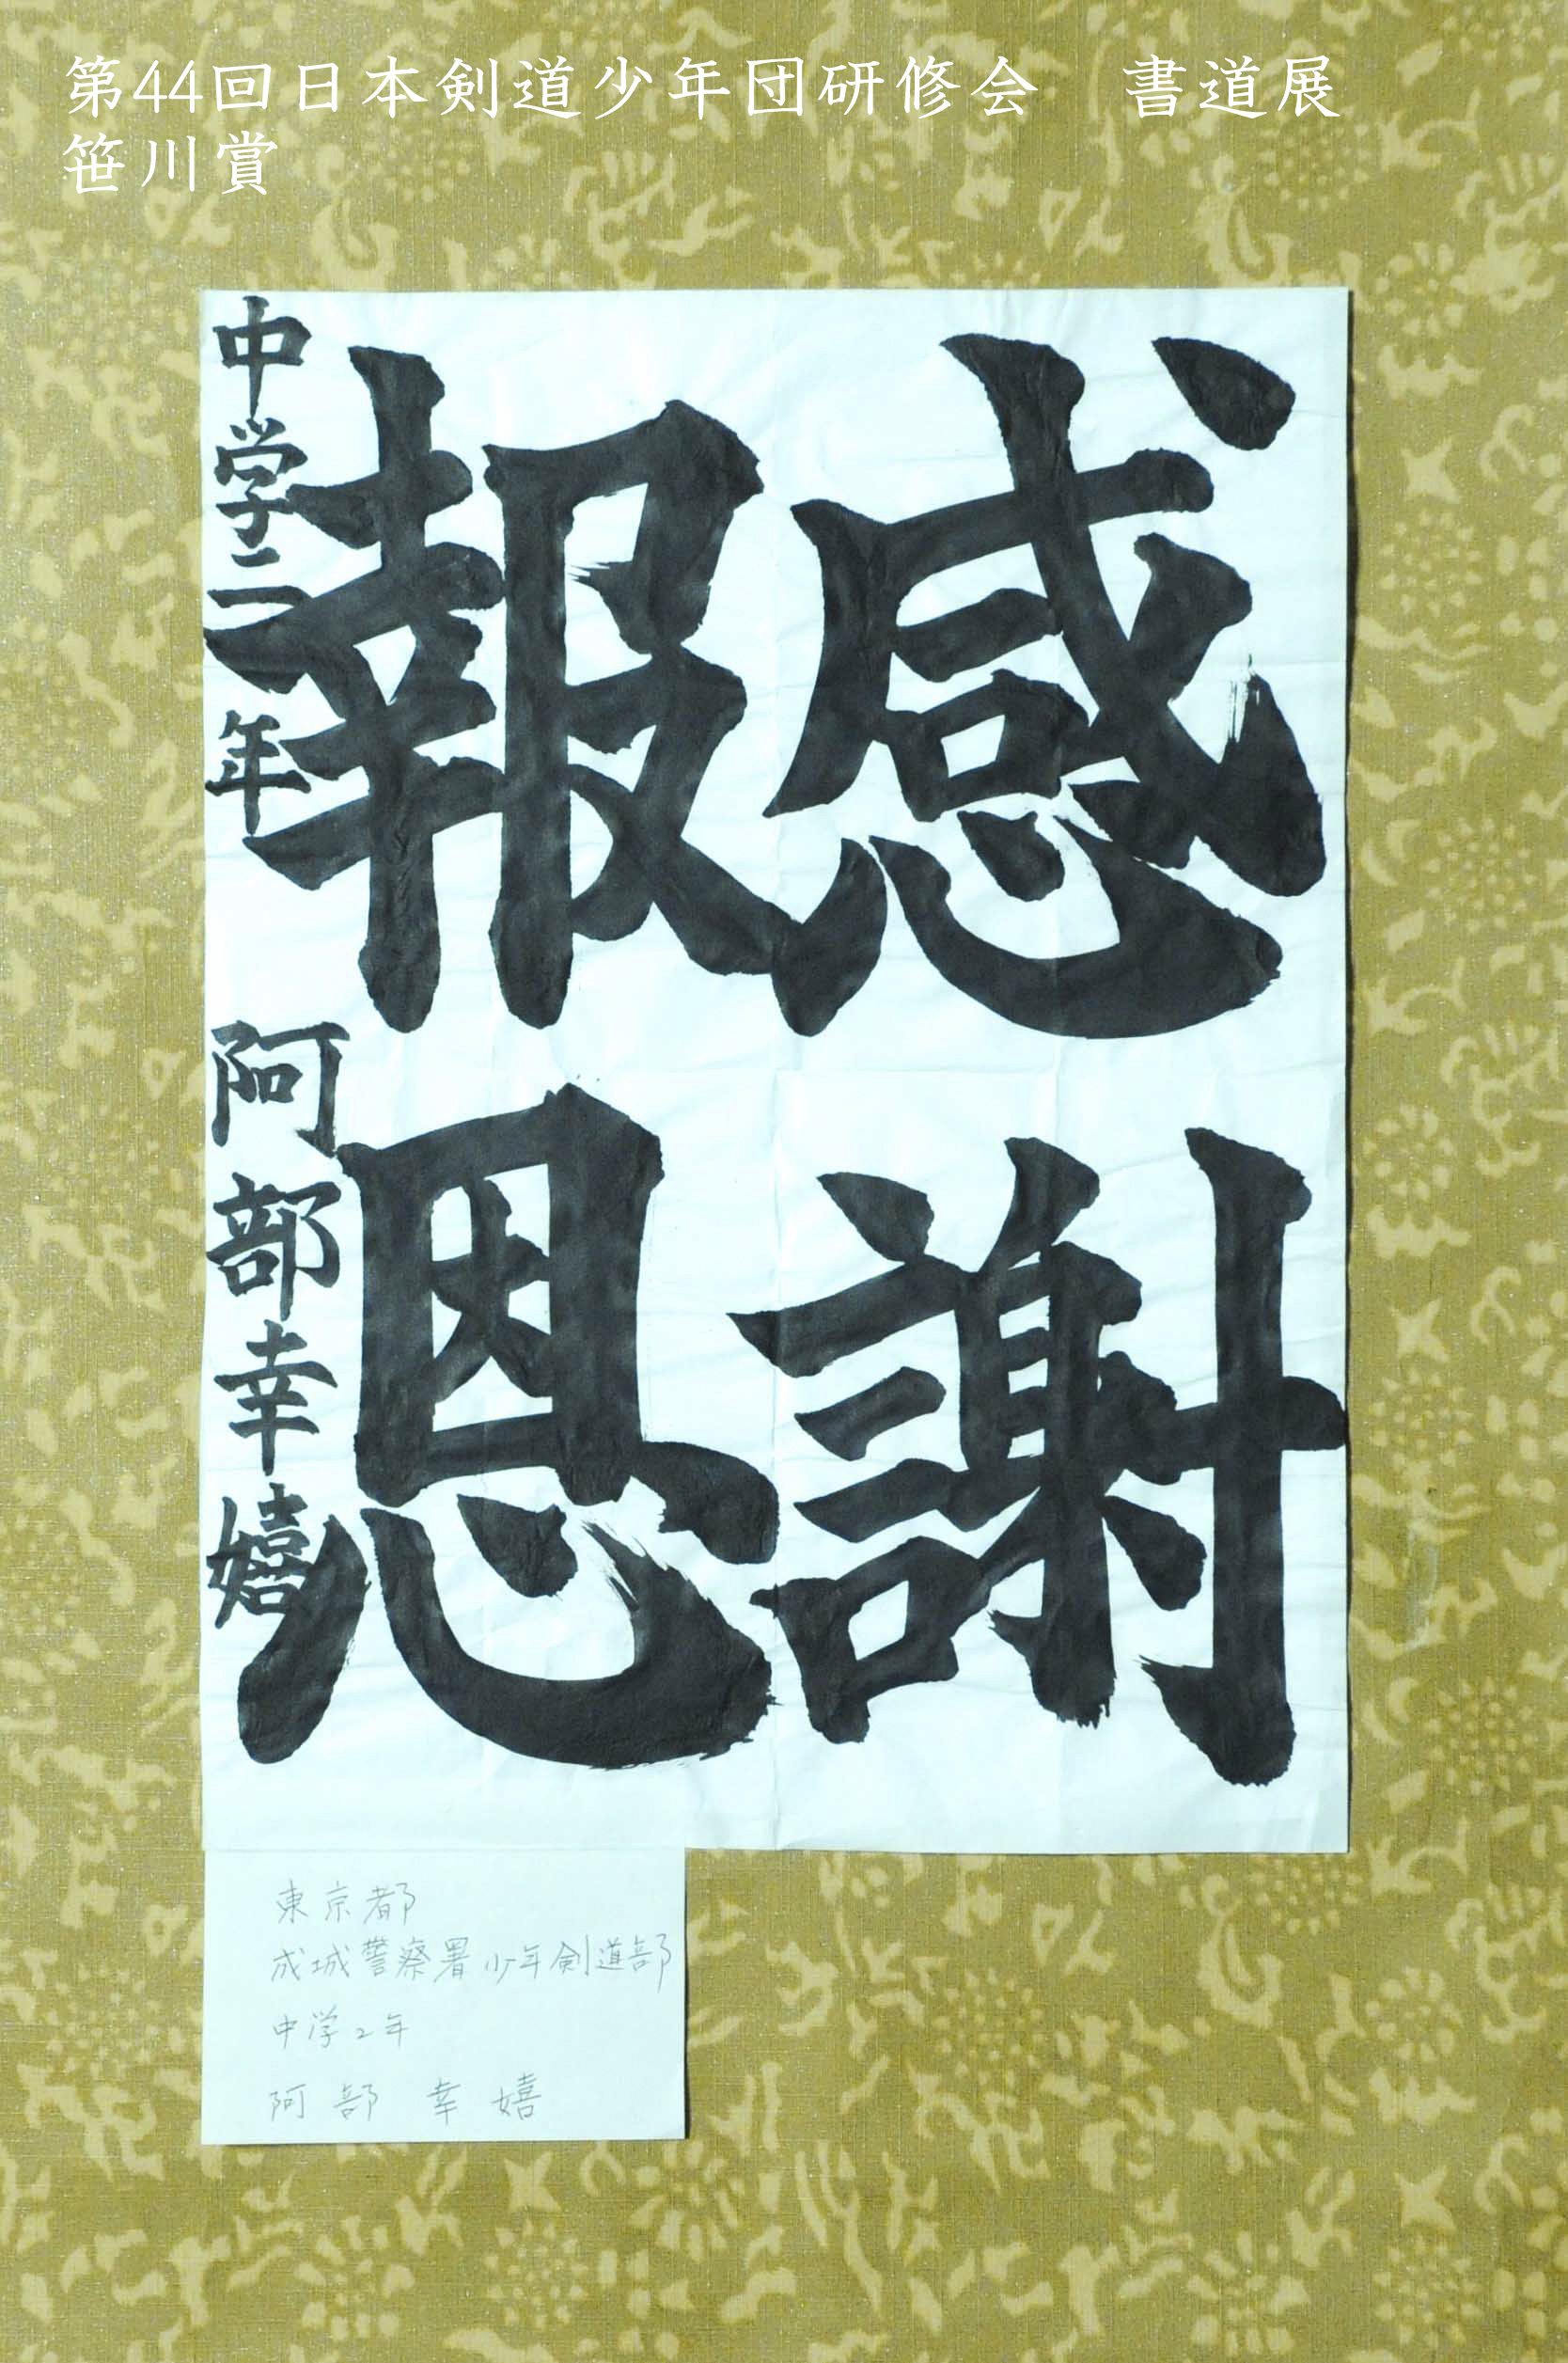 第44回日本剣道少年団研修会　書道展
笹川賞
感謝
報恩
中学二年　阿部幸嬉
東京都
成城警察署少年剣道部
中学2年
阿部　幸嬉